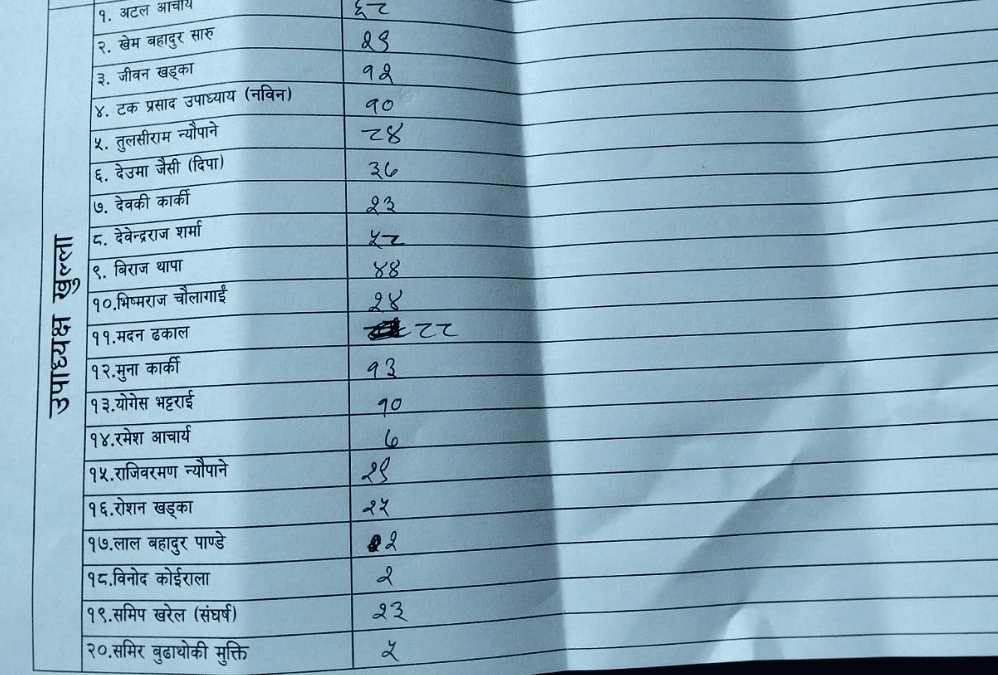 उपाध्यक्ष खुल्ला
१. अटल आचार्य ६८
२. खेम बहादुर सारु २९
३. जीवन खड्का १२
४. टक प्रसाद उपाध्याय (नविन) १०
५. तुलसीराम न्यौपाने ८४
६. देउमा जैसी (दिपा) ३७
७. देवकी कार्की २३
८. देवेन्द्रराज शर्मा ५८
९. बिराज थापा ४४
१०.भिष्मराज चौलागाईं २४
११.मदन ढकाल ८८
१२.मुना कार्की १३
१३.योगेस भट्टराई १०
१४.रमेश आचार्य ७
१५.राजिवरमण न्यौपाने २९
१६.रोशन खड्का २५
१७.लाल बहादुर पाण्डे २
१८.विनोद कोईराला २
१९.समिप खरेल (संघर्ष) २३
२०.समिर बुढाथोकी मुक्ति ५